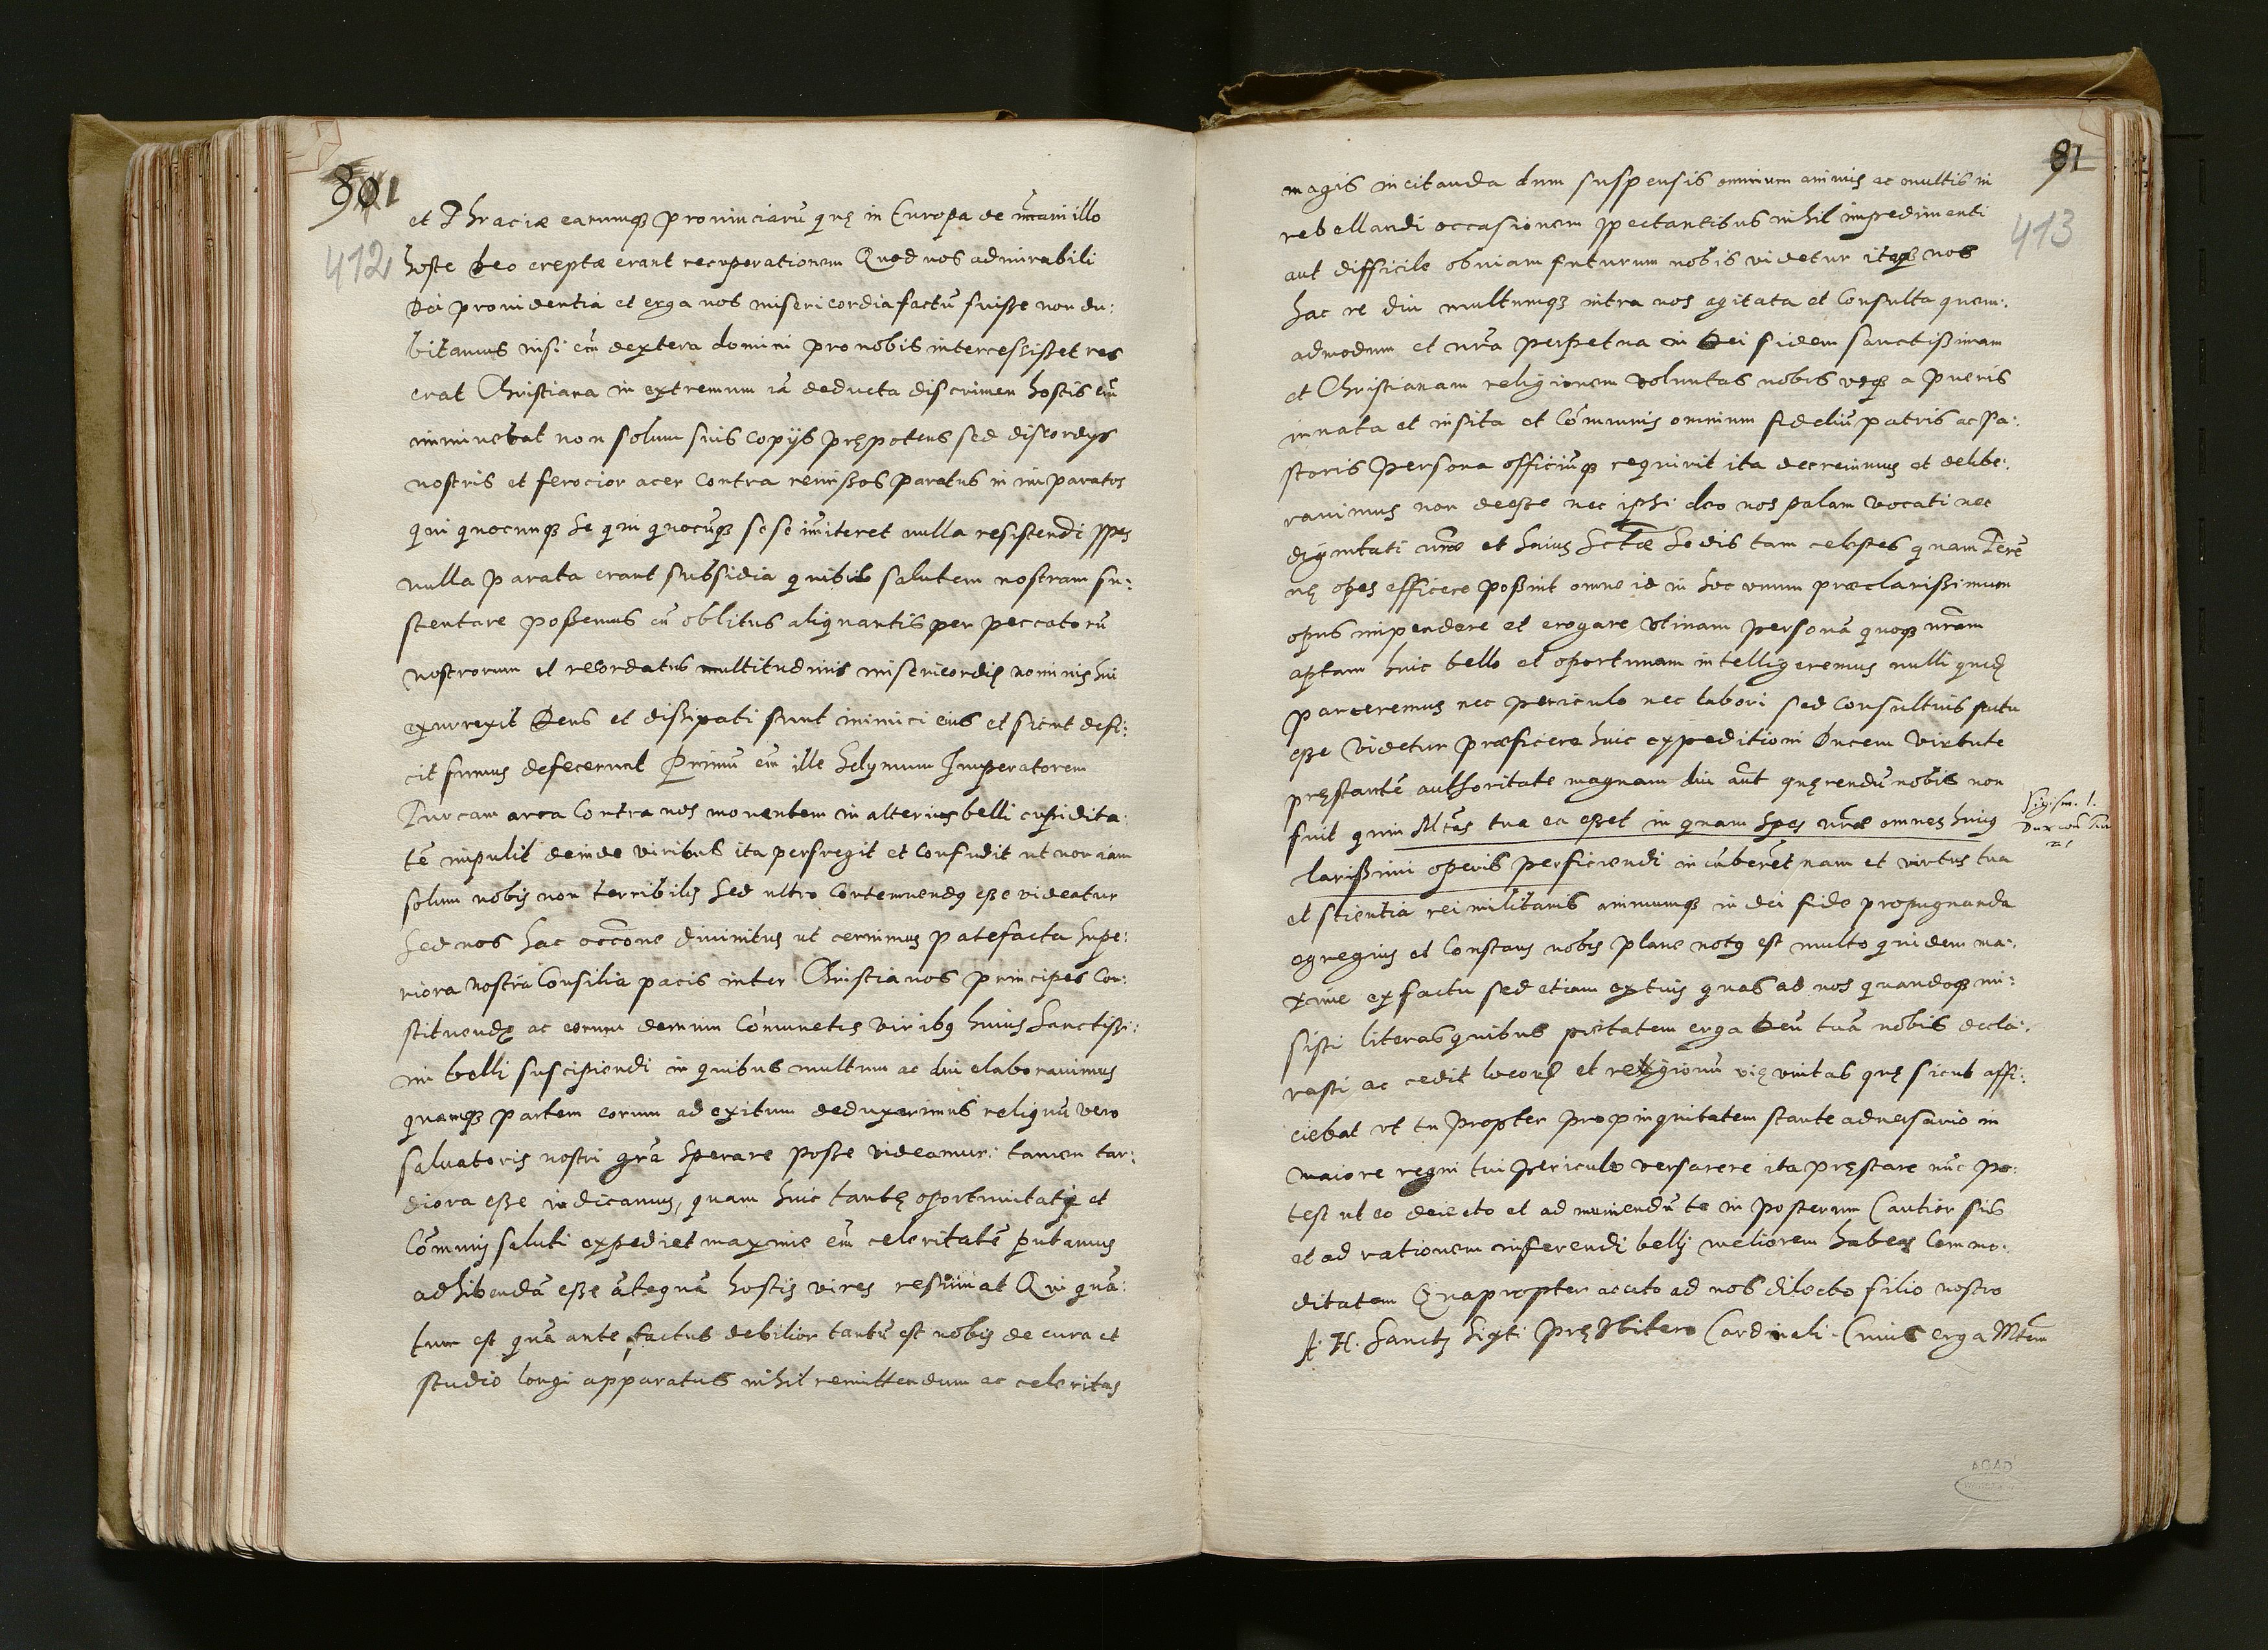 801
412
et Thraciæ earumq₃ prouinciarũ quę in Europa de manu illo
hoste Deo ereptæ erant recuperationem Quod nos admirabili
Dei prouidentia et erga nos misericordia factũ fuiße non du:
bitamus nisi em̃ dextera domini pro nobis intercessißet res
erat Christiana in extremum iã deducta discrimen hostis em̃
imminebat non solum suis copijs prępotens sed discordijs
nostris et ferocior acer contra remißos paratus in imparatos
qui quocunq₃ se qui quocũq₃ sese imiteret nulla resistendi spes
nulla parata erant subsidia quibus salutem nostram su:
stentare poßemus cũ oblitus aliquantisper peccatorũ
nostrorum et recordatus multitudinis misericordię nominis sui
exurrexit Deus et dißipati sunt inimici eius et sicut defi:
cit fumus defecerunt Primũ em̃ ille Selymum Imperatorem
Turcam arca contra nos mouentem in alterius belli cupidita:
tẽ impulit deinde viribus ita perfregit et confudit ut non iam
solum nobis non terribilis sed ultro contemnendus eße videatur
Sed nos hac occõne diuinitus ut cernimus patefacta supe:
riora nostra Consilia pacis inter Christianos principes con:
stituendę ac eorum demum Cõmunctis viribus huius Sanctißi:
mi belli suscipiendi in quibus multum ac diu elaborauimus
quamq₃ partem eorum ad exitum deduxerimus reliquũ vero
saluatoris nostri grã sperare poße videamur: tamen tar:
diora eße iudicamus, quam huic tantę oportunitati et
Cõmuni saluti expediet maxime em̃ celeritatẽ putamus
adhibendã eße ãtequã hostis vires resumat Qui quã:
tum est quã ante factus debilior tantũ est nobis de cura et
studio longi apparatus nihil remittendum ac celeritas
81
413
magis incitanda dum suspensis omnium animis ac multis in
rebellandi occasionem spectantibus nihil impedimenti
aut difficile obuiam futurum nobis videtur itaq₃ nos
hac re diu multumq₃ intra nos agitata et Consulta quem:
admodum et nr̃a perpetua in Dei fidem sanctißimam
et Christianam religionem voluntas nobis usq₃ a pueris
innata et insita et Cõmunis omnium fideliũ patris ac pa:
storis persona officiũq₃ requirit ita decreuimus et delibe:
rauimus non deeße nec ipsi deo nos palam vocati nec
dignitati nr̃æ et huius Sctæ Sedis tam celestes quam Terẽ
nę opes efficere poßint omne id in hoc unum præclarißimum
opus impendere et erogare Vtinam personã quoq₃ nr̃am
aptam huic bello et oportunam intelligeremus nulli quidẽ
parceremus nec periculo nec labori sed Consultius factu
eße videtur præficere huic expeditioni Ducem Virtute
pręstantẽ authoritate magnam diu aũt quęrendũ nobis non
fuit quin Mtas tua ea eßet in quam spes nr̃æ omnes huius
Sigism. 1.
Dux con̄
larißimi operis perficiendi incũberẽt nam et virtus tua
et scientia rei militaris animumq₃ in dei fide propugnanda
egregius et Constans nobis plane notus est multo quidem ma:
xime ex factu sed etiam ex tuis quas ad nos quandoq₃ mi:
sisti literas quibus pietatem erga Deũ tuã nobis decla:
rasti ac cedit locorũ et regionũ vicinitas quę sicut affi:
ciebat ut tu propter propinquitatem stante aduersario in
maiore regni tui periculo versarere ita pręstare nũc po:
test ut eo deiecto et ad muniendũ te in posterum Cautior sis
et ad rationem inferendi belli meliorem habeas Commo:
ditatem Quapropter accito ad nos dilecto filio nostro
A. H. Sancti Sixti Pręsbitero Cardinali. Cuius erga Mtem̃